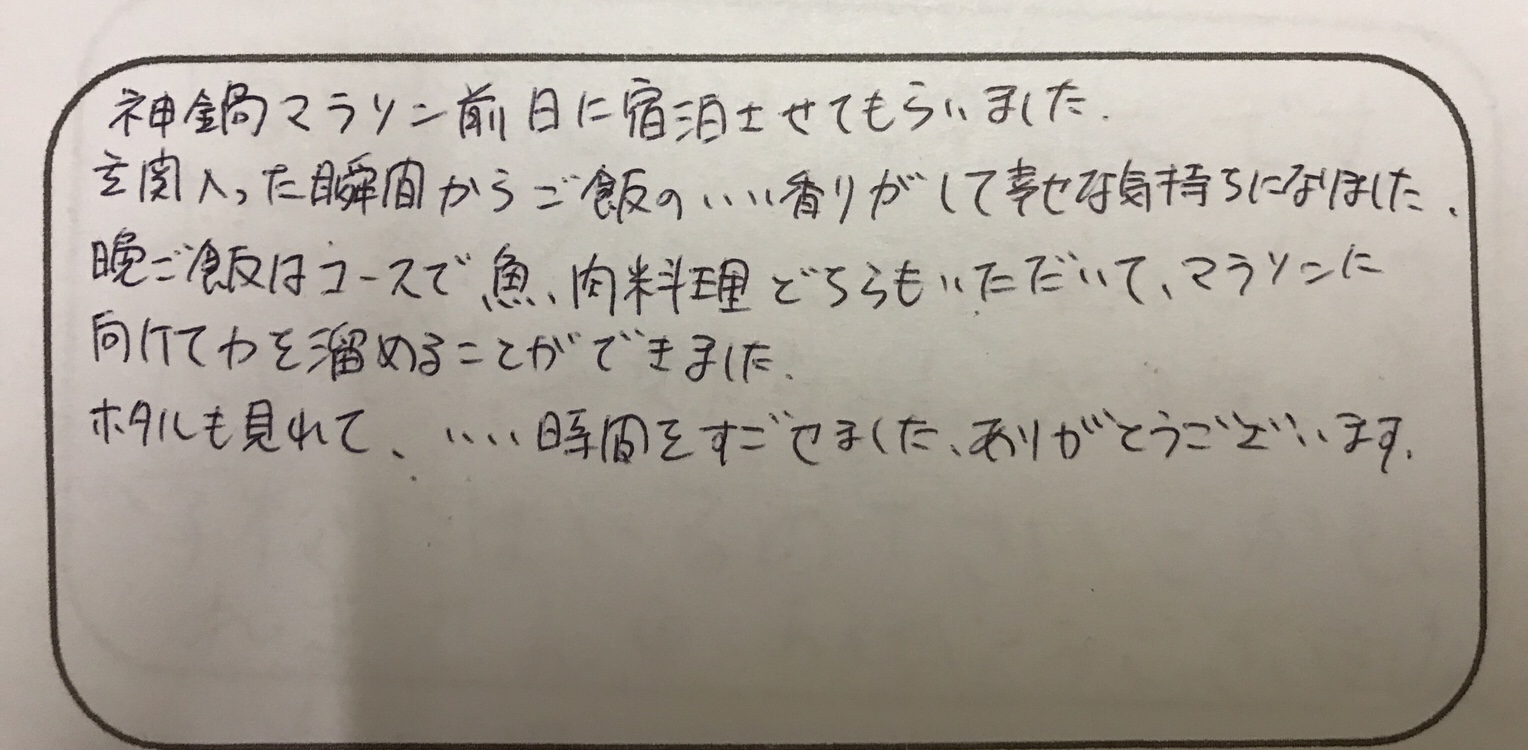 神鍋マラソン前日に宿泊させてもらいました.
玄関入った瞬間からご飯のいい香りがして幸せな気持ちになりました.
晩ご飯はコースで、魚、肉料理どちらもいただいて、マラソンに
向けて力を溜めることができました.
ホタルも見れて、いい時間をすごせました、ありがとうございます.